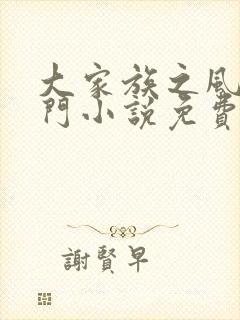 大家族之風
門小説免費
謝賢早